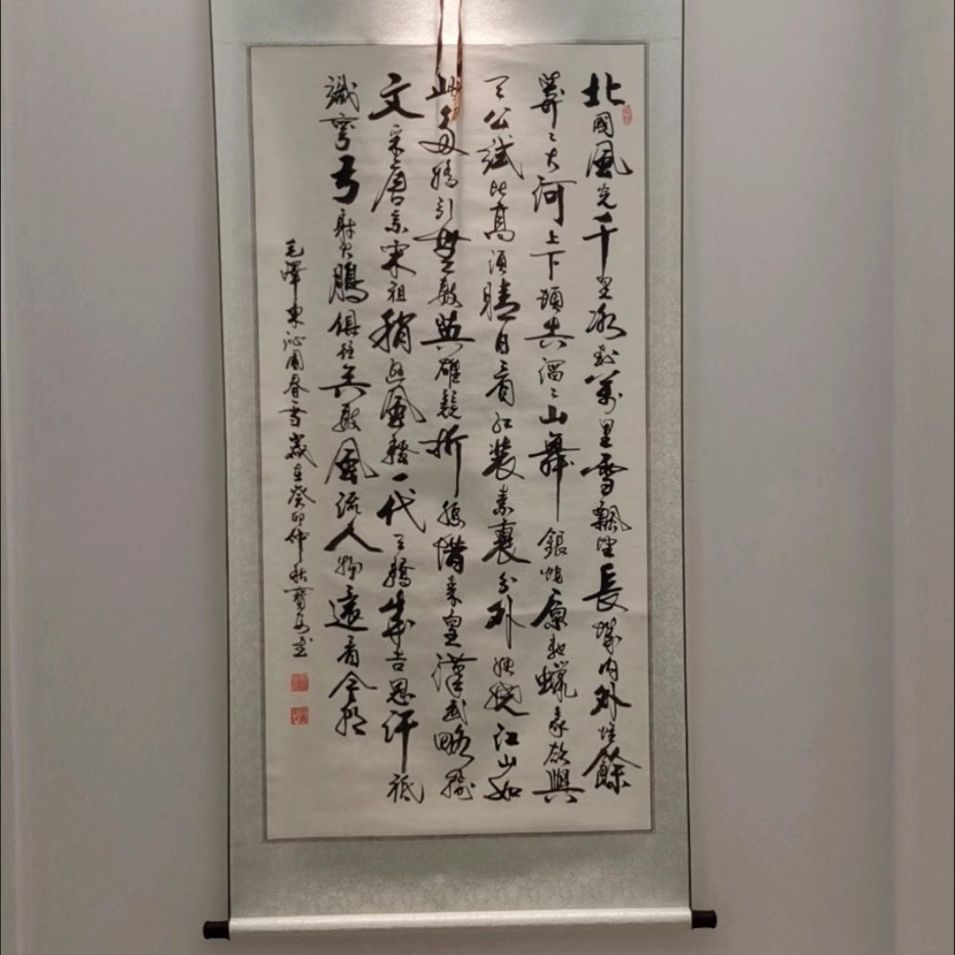 北國風光千里冰封萬里雪飄望長城内外惟餘
莽〻大河上下頓失滔〻山舞銀蛇原馳蠟象欲與
天公試比高須晴日看紅裝素裹分外妖嬈江山如
此多嬌引無數英雄競折腰惜秦皇漢武略輸
文采唐宗宋祖稍遜風騷一代天驕成吉思汗祗
識彎弓射大鵰俱往矣數風流人物還看今朝
毛澤東沁園春雪歲在癸卯仲秋